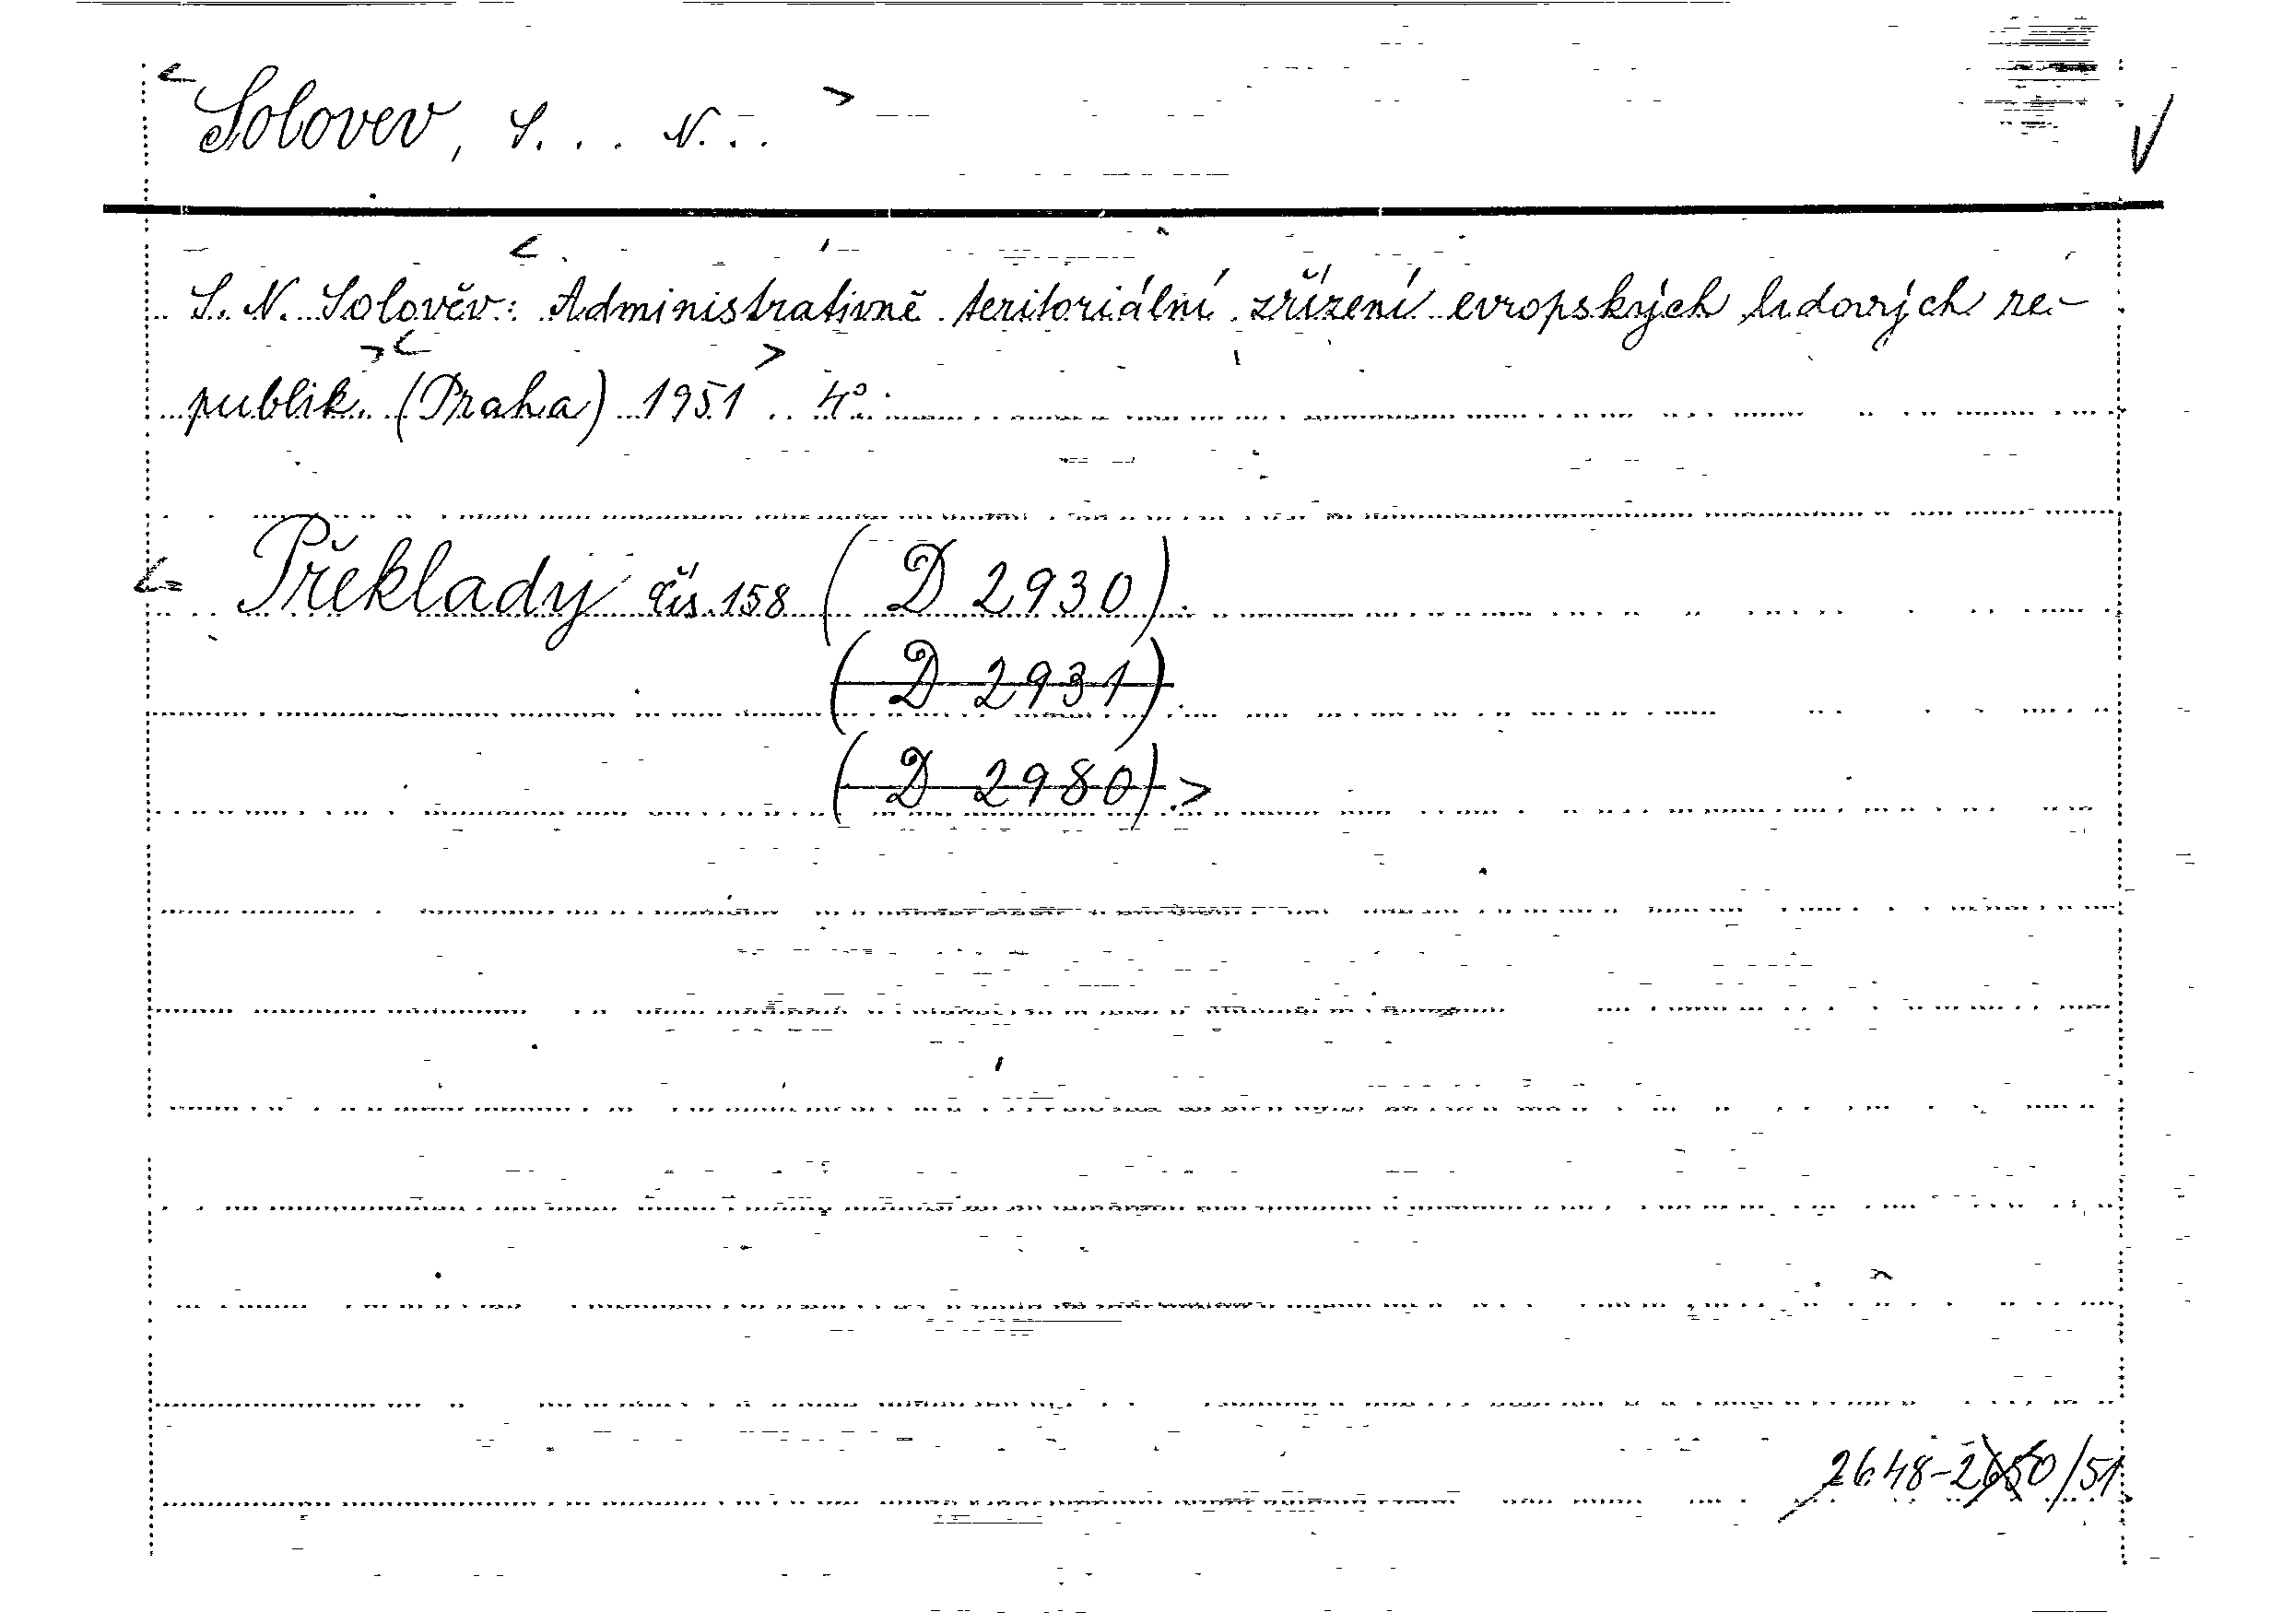 <Solovev, S... N...>
S. N. Solověv: <Administrativně teritoriální zřízení evropských lidových re-
publik.> <(Praha) 1951> 4°.
<= Překlady čís. 158 (D 2930).
(D 2931).
(D 2980).>
2648-2650/51